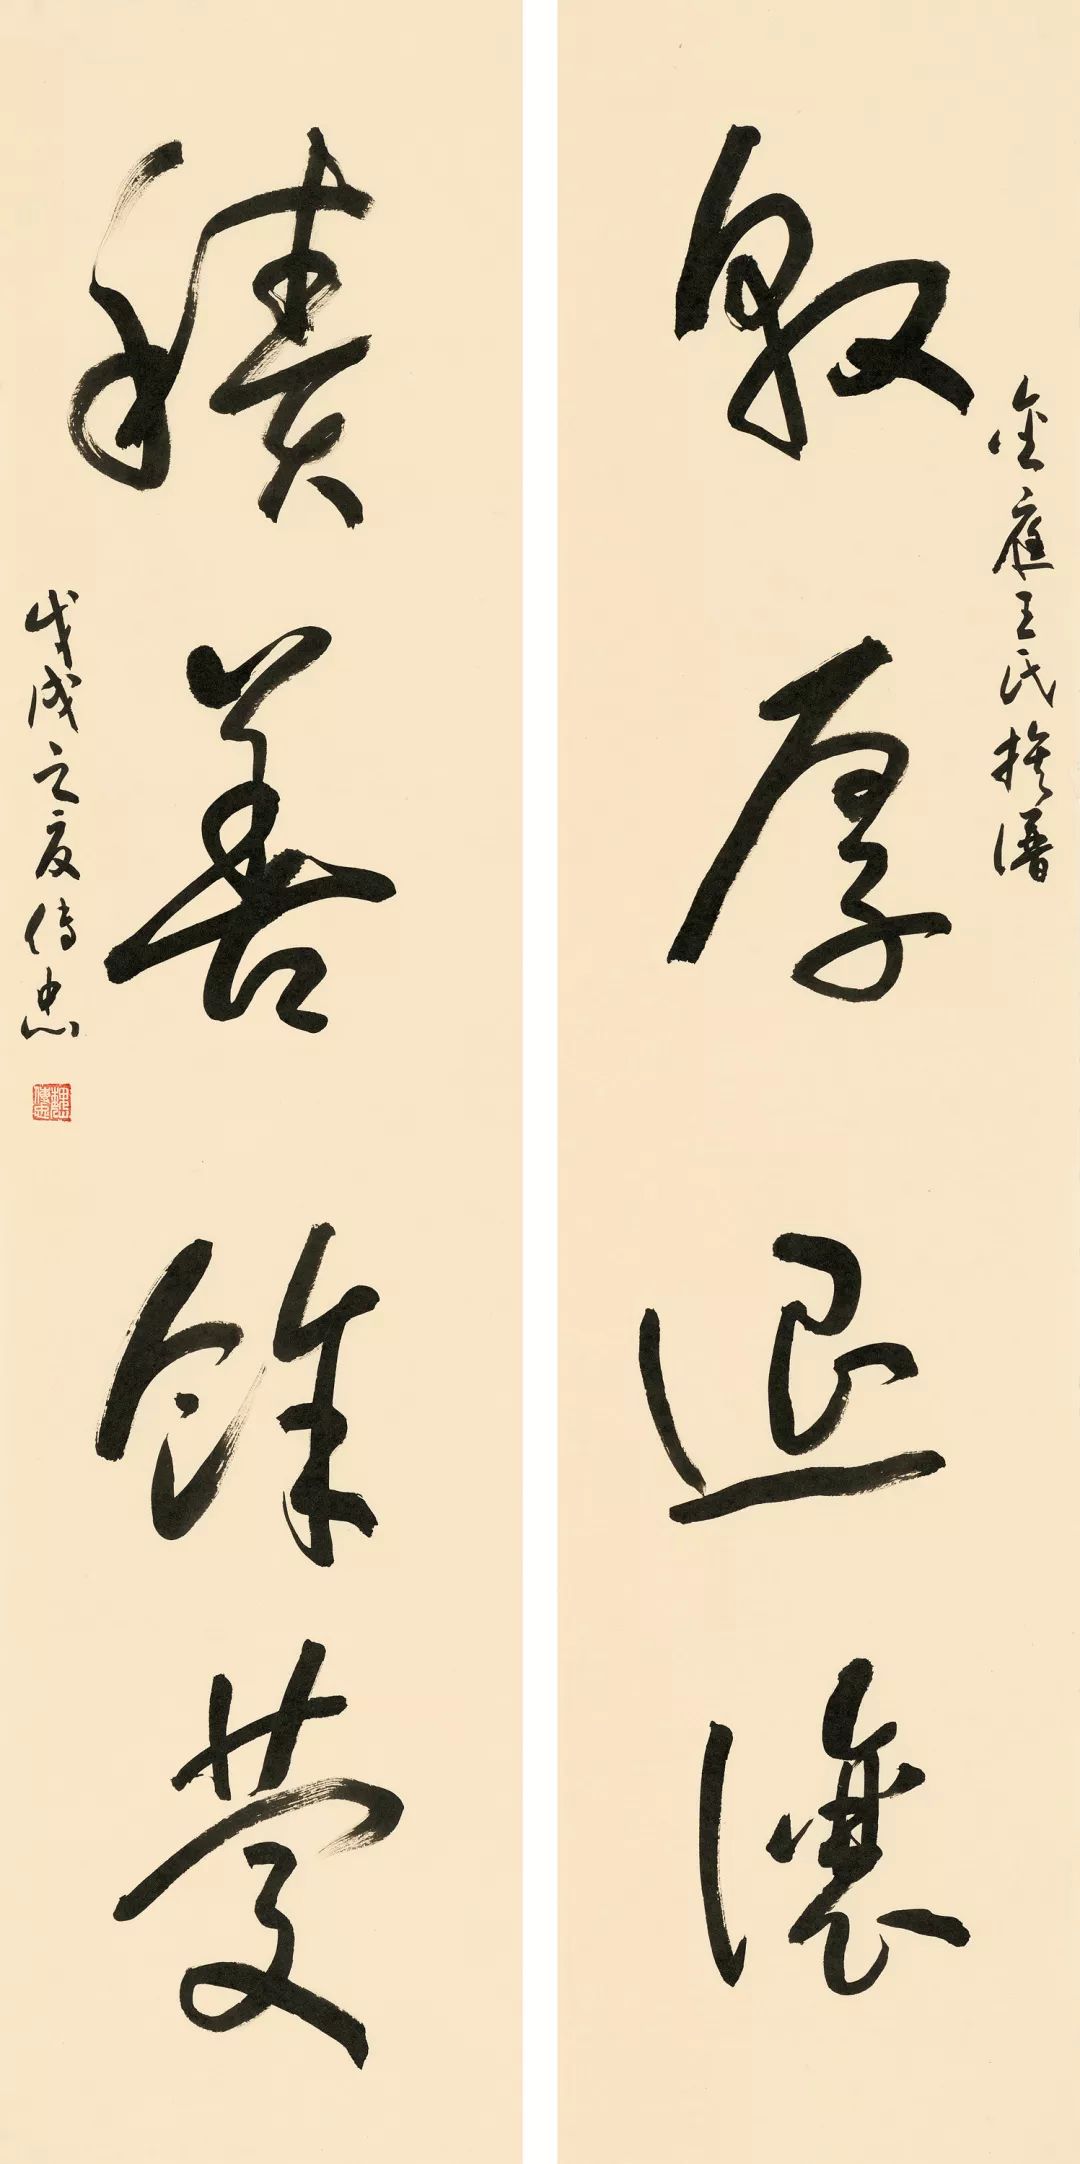 金庭王氏族譜
敦厚退讓
積善餘慶
戊戌之夏傳忠